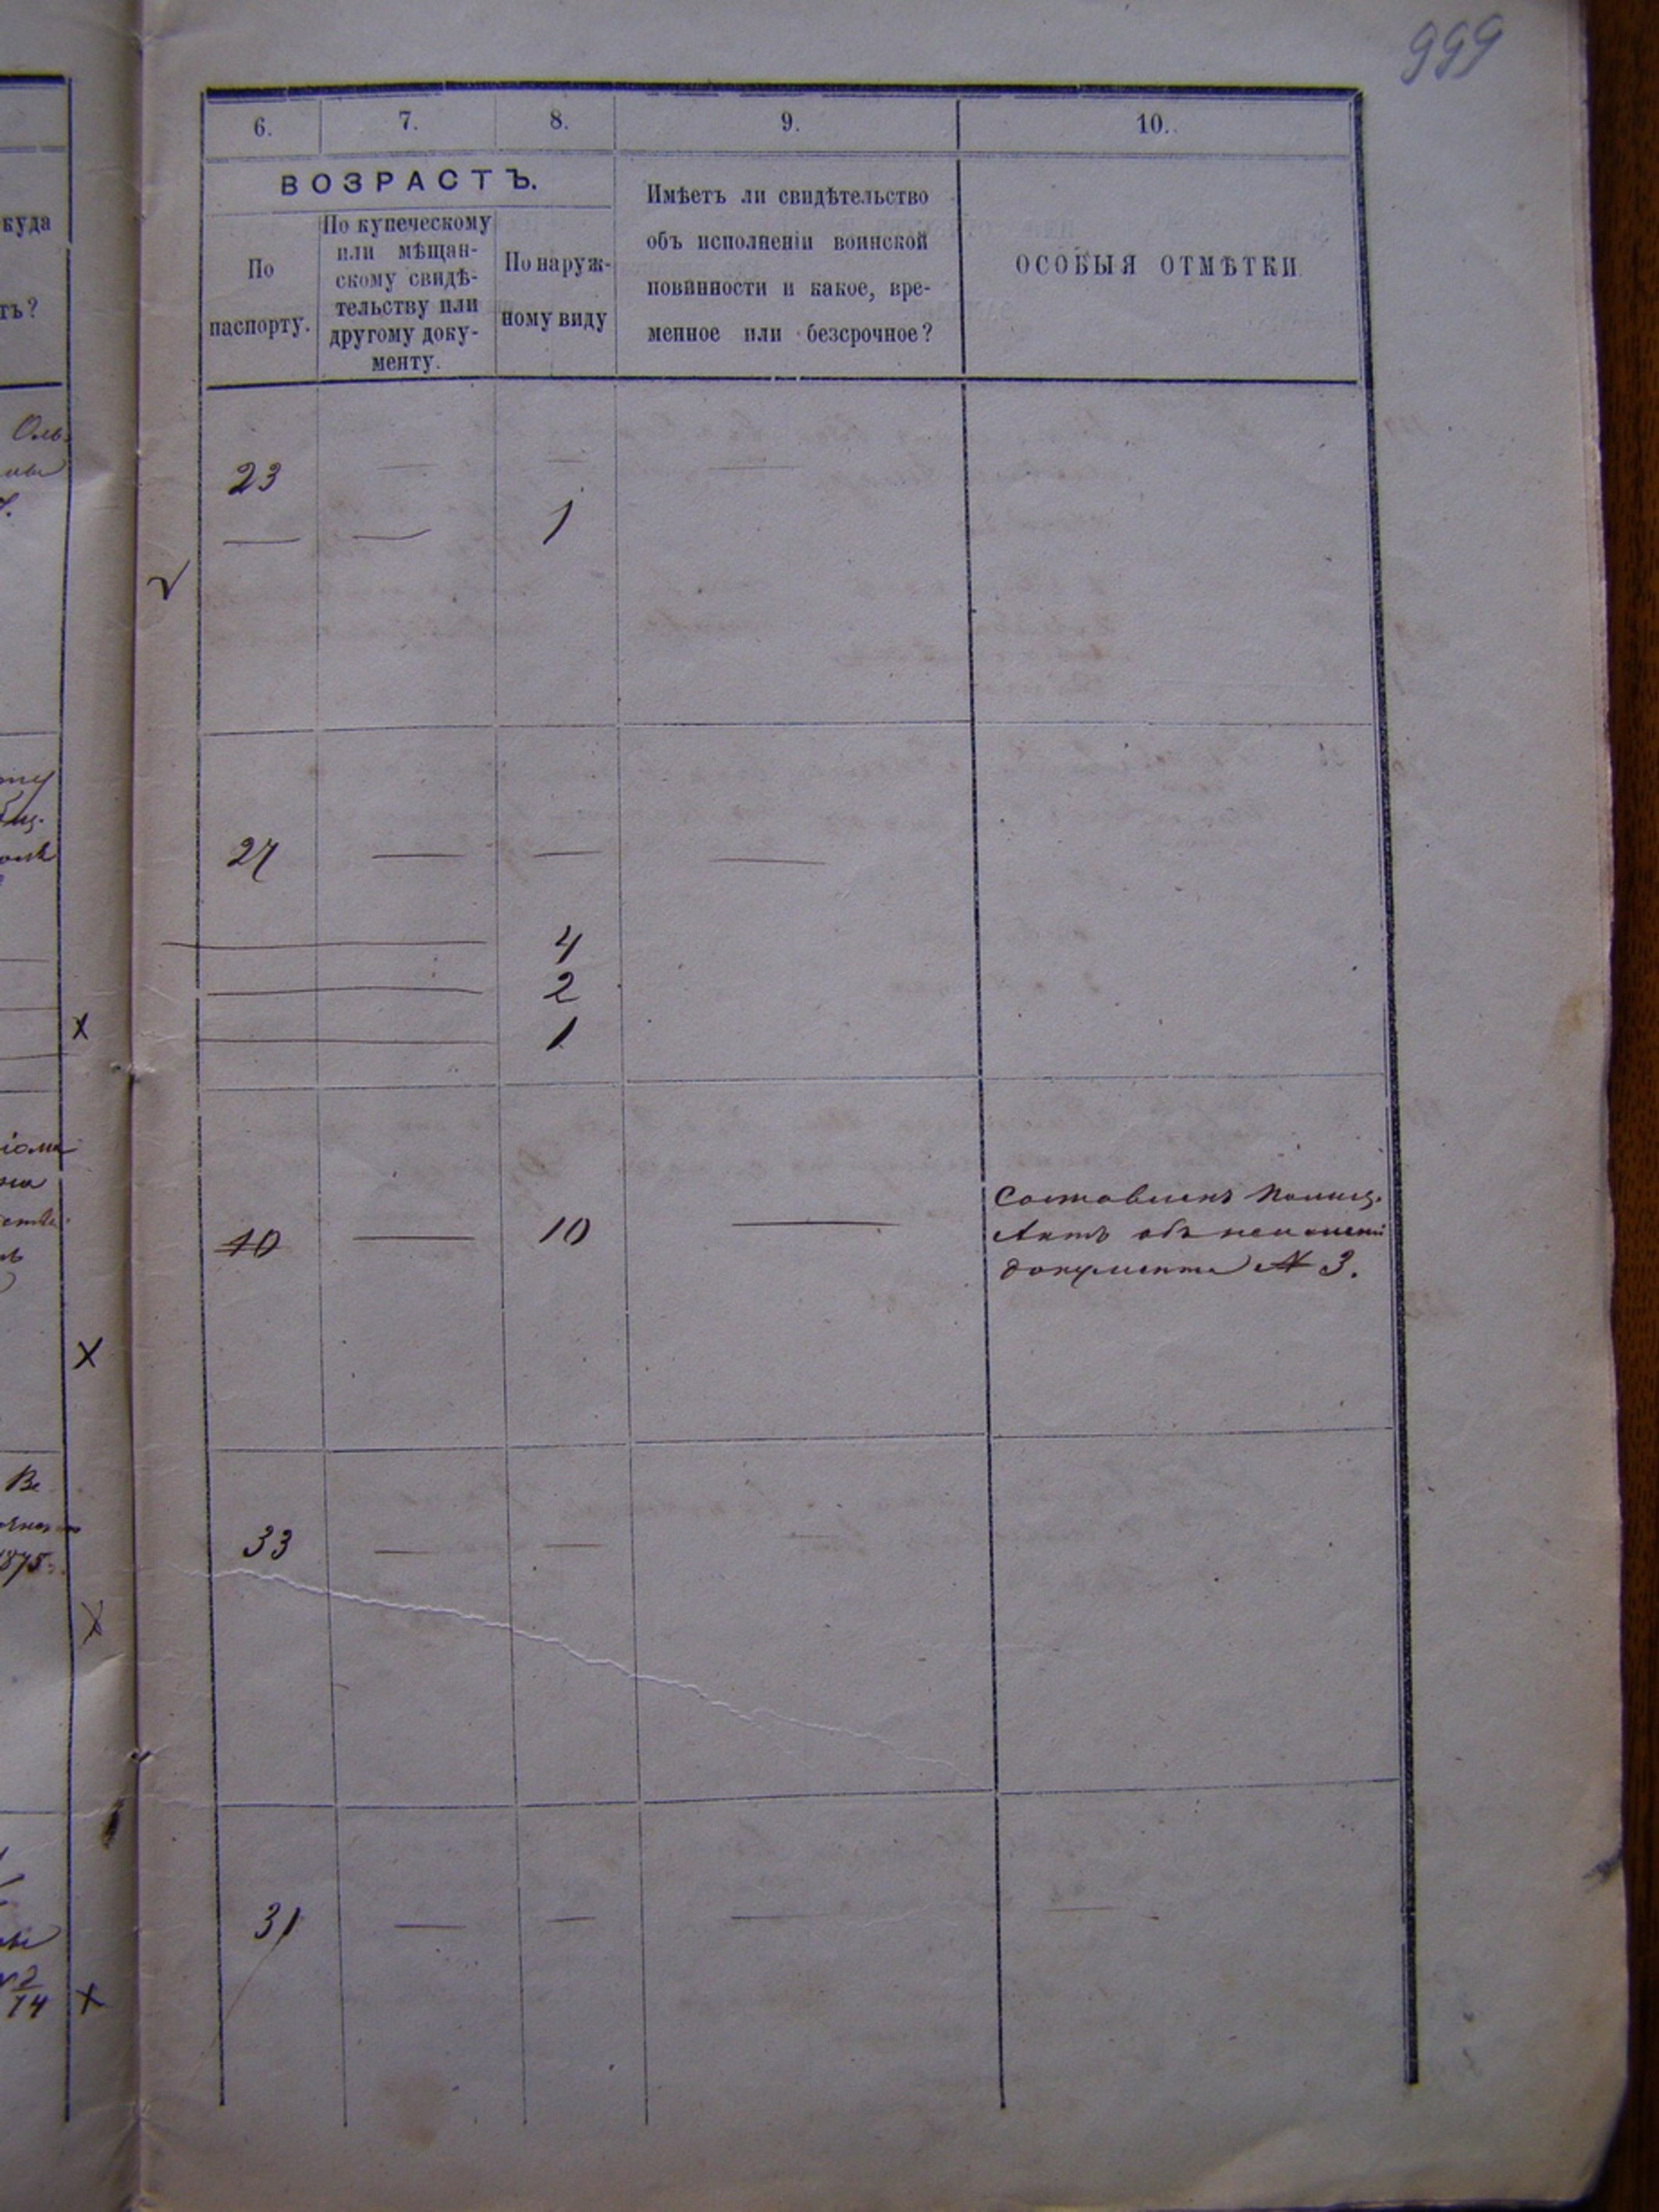 999
6. 7. 8. 9. 10.
ВОЗРАСТЪ.
По
паспорту.
По купеческому
или мѣщан-
скому свидѣ-
тельству или
другому доку-
менту.
По наруж-
ному виду
Имѣетъ ли свидѣтельство
объ исполненіи воинской
повинности и какое, вре-
менное или безсрочное?
ОСОБЫЯ ОТМѢТКИ
куда
тъ?
23 — — —
— — 1
27 — — —
4
2
1
10 — 10 —
Составленъ полиц.
Актъ объ неимении
документа № 3.
33 — — —
1875
31 — — — —
2
14